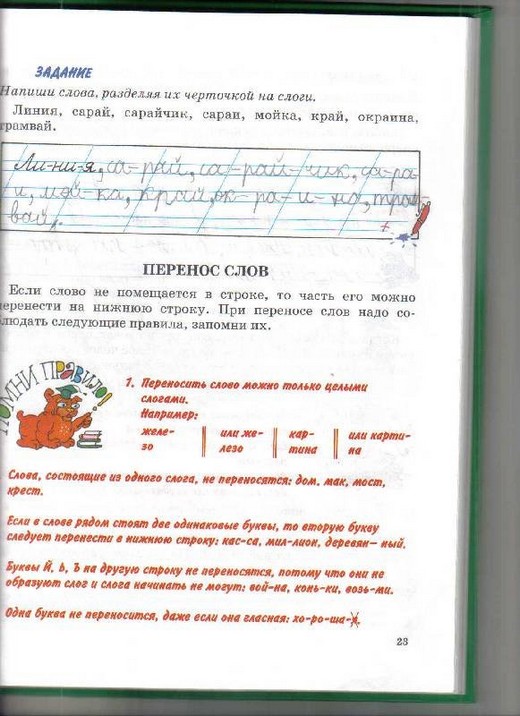 ЗАДАНИЕ
Напиши слова, разделяя их черточкой на слоги.
Линия, сарай, сарайчик, сараи, мойка, край, окраина,
трамвай.
Ли-ни-я, са-рай, са-рай-чик, са-ра-
и, мой-ка, край, ок-ра-и-на, трам-
вай.
ПЕРЕНОС СЛОВ
Если слово не помещается в строке, то часть его можно
перенести на нижнюю строку. При переносе слов надо со-
блюдать следующие правила, запомни их.
ПОМНИ ПРАВИЛО!
1. Переносить слово можно только целыми
слогами.
Например:
желе- или же- кар- или карти-
зо лезо тина на
Слова, состоящие из одного слога, не переносятся: дом. мак, мост,
крест.
Если в слове рядом стоят две одинаковые буквы, то вторую букву
следует перенести в нижнюю строку: кас-са, мил-лион, деревян- ный.
Буквы Й, Ь, Ъ на другую строку не переносятся, потому что они не
образуют слог и слога начинать не могут: вой-на, конь-ки, возь-ми.
Одна буква не переносится, даже если она гласная: хо-ро-ша-я.
23